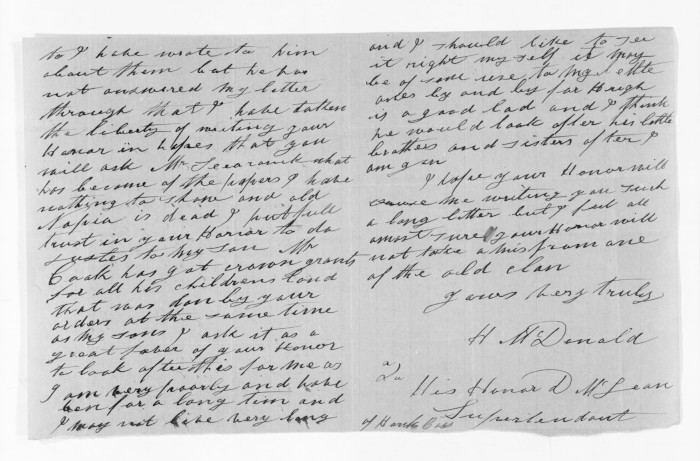 to I have wrote to him
about them but he has
not answered my letter
through that I have taken
the liberty of writing your
Honor in hopes that you
will ask Mr what
has become of the papers I have
nothing to show and old
Napia is dead I put full
trust in your Honor to do
justes to my son Mr
Cook has got crown grants
for all his childrens land
that was don by your
orders at the same time
as my sons I ask it as a
great faver of your Honor
to look after this for me as
I am very poorly and have
ben for a long tim and
I may not live very long
and I should like to see
it right my self it may
be of some use to my little
ones by and by for Hugh
is a good lad and I think
he would look after his little
brothers and sisters after I
am gon
I hope your Honor will
excuse me writing you such
a long letter but I feel all
most sure your Honor will
not take a mis from one
of the old clan
yours very truly
H McDonald
To
His Honor D McLean
Supertendant
of Hawks Bay